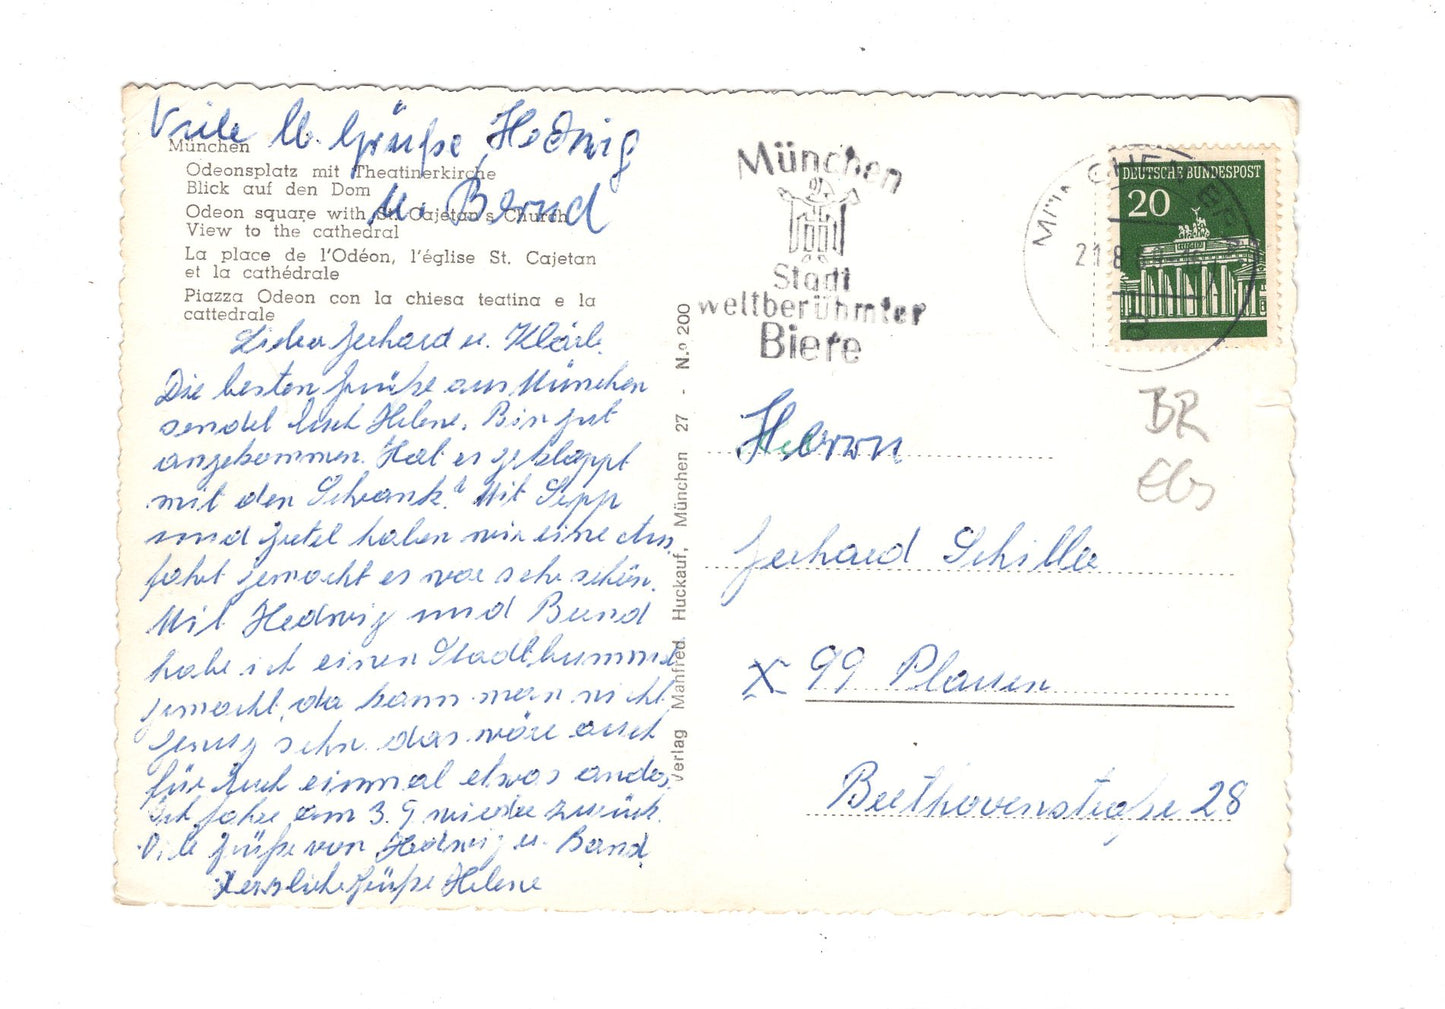 Viele lb. Grüße Hedwig
u. Bernd
München
Odeonsplatz mit Theatinerkirche
Blick auf den Dom
Odeon square with St. Cajetan's Church
View to the cathedral
La place de l'Odéon, l'église St. Cajetan
et la cathédrale
Piazza Odeon con la chiesa teatina e la
cattedrale
Lieber Gerhard u. Klärle
Die besten Grüße aus München
sendet Euch Helene. Bin gut
angekommen. Hat es geklappt
mit den Schrank? Mit Sepp
und Gretel haben wir eine Aus
fahrt gemacht es war sehr schön.
Mit Hedwig und Bernd
habe ich einen Stadtbummel
gemacht, da kann man nicht
genug sehn. das wäre auch
für Euch einmal etwas andes.
Ich fahre am 3.9 wieder zurück.
Viele Grüße von Hedwig u. Bernd
Herzliche Grüße Helene
Verlag Manfred Huckauf, München 27 - N.º 200
München
Stadt
weltberühmter
Biere
DEUTSCHE BUNDESPOST
20
21.8
BR
Ebs
Herrn
Gerhard Schiller
X 99 Plauen
Beethovenstraße 28